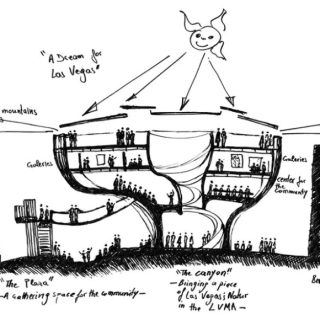 "A Dream for
Las Vegas"
mountains
Galleries
Galleries
center for
the
community
"The Plaza"
—A gathering space for the community—
"The canyon"
—Bringing a piece
of Las Vegas's Natur
in the LVMA—